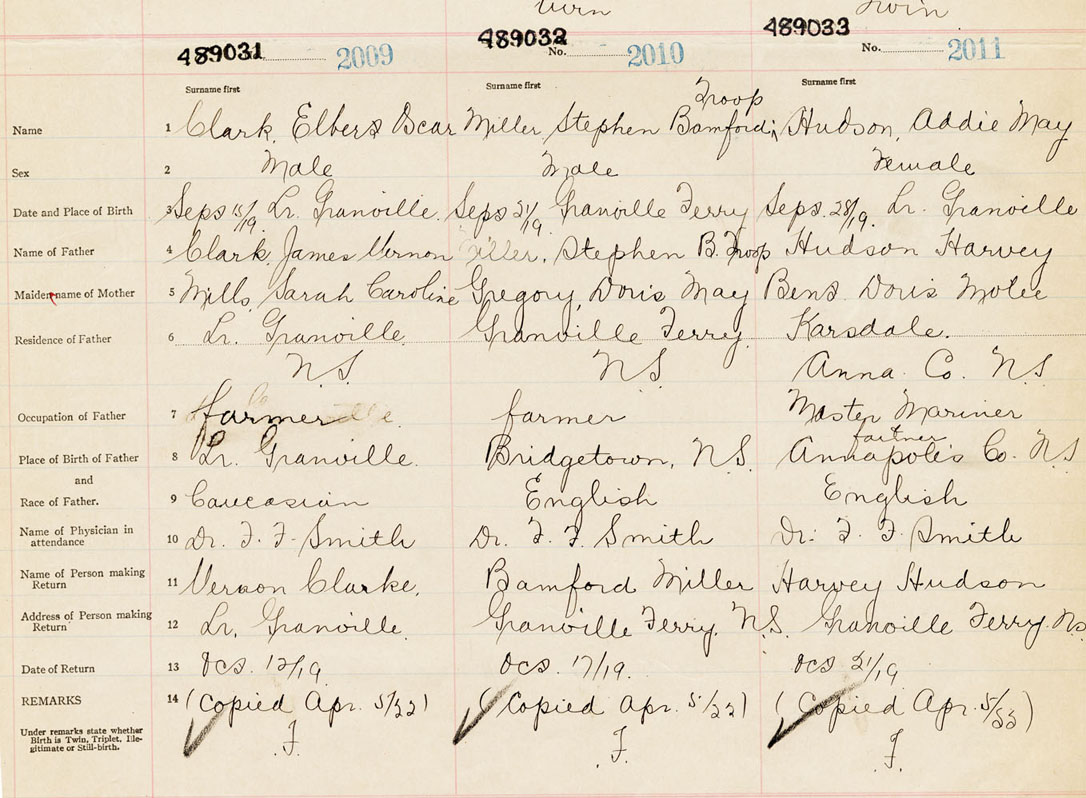 489031 2009 489032 No. 2010 489033 No. 2011
Surname first Surname first Surname first
Troop
Name 1 Clark, Elbert Oscar Miller, Stephen Bamford; Hudson, Addie May
Sex 2 Male Male Female
Date and Place of Birth 3 Sept 15/19. Lr. Granville. Sept 21/19 Granville Ferry Sept. 28/19. Lr. Granville
Name of Father 4 Clark, James Vernon Miller, Stephen B. Troop Hudson Harvey
Maiden name of Mother 5 Mills, Sarah Caroline Gregory, Doris May Bent Doris
Residence of Father 6 Lr. Granville. Granville Ferry. Karsdale.
N.S. N.S. Anna. Co. N.S.
Occupation of Father 7 farmer farmer Master Mariner
Place of Birth of Father 8 Lr. Granville. Bridgetown, N.S. Annapolis Co. N.S.
and
Race of Father. 9 Caucasian English English
Name of Physician in
attendance 10 Dr. F. F. Smith Dr. F. F. Smith Dr. F. F. Smith
Name of Person making
Return 11 Vernon Clarke. Bamford Miller Harvey Hudson
Address of Person making
Return 12 Lr. Granville. Granville Ferry. N.S. Granville Ferry. N.S.
Date of Return 13 Oct. 12/19. Oct. 17/19. Oct 21/19
REMARKS 14 (Copied Apr. 5/22) (Copied Apr. 5/22) (Copied Apr. 5/22)
Under remarks state whether
Birth is Twin, Triplet, Ille-
gitimate or Still-birth.
F. F. F.